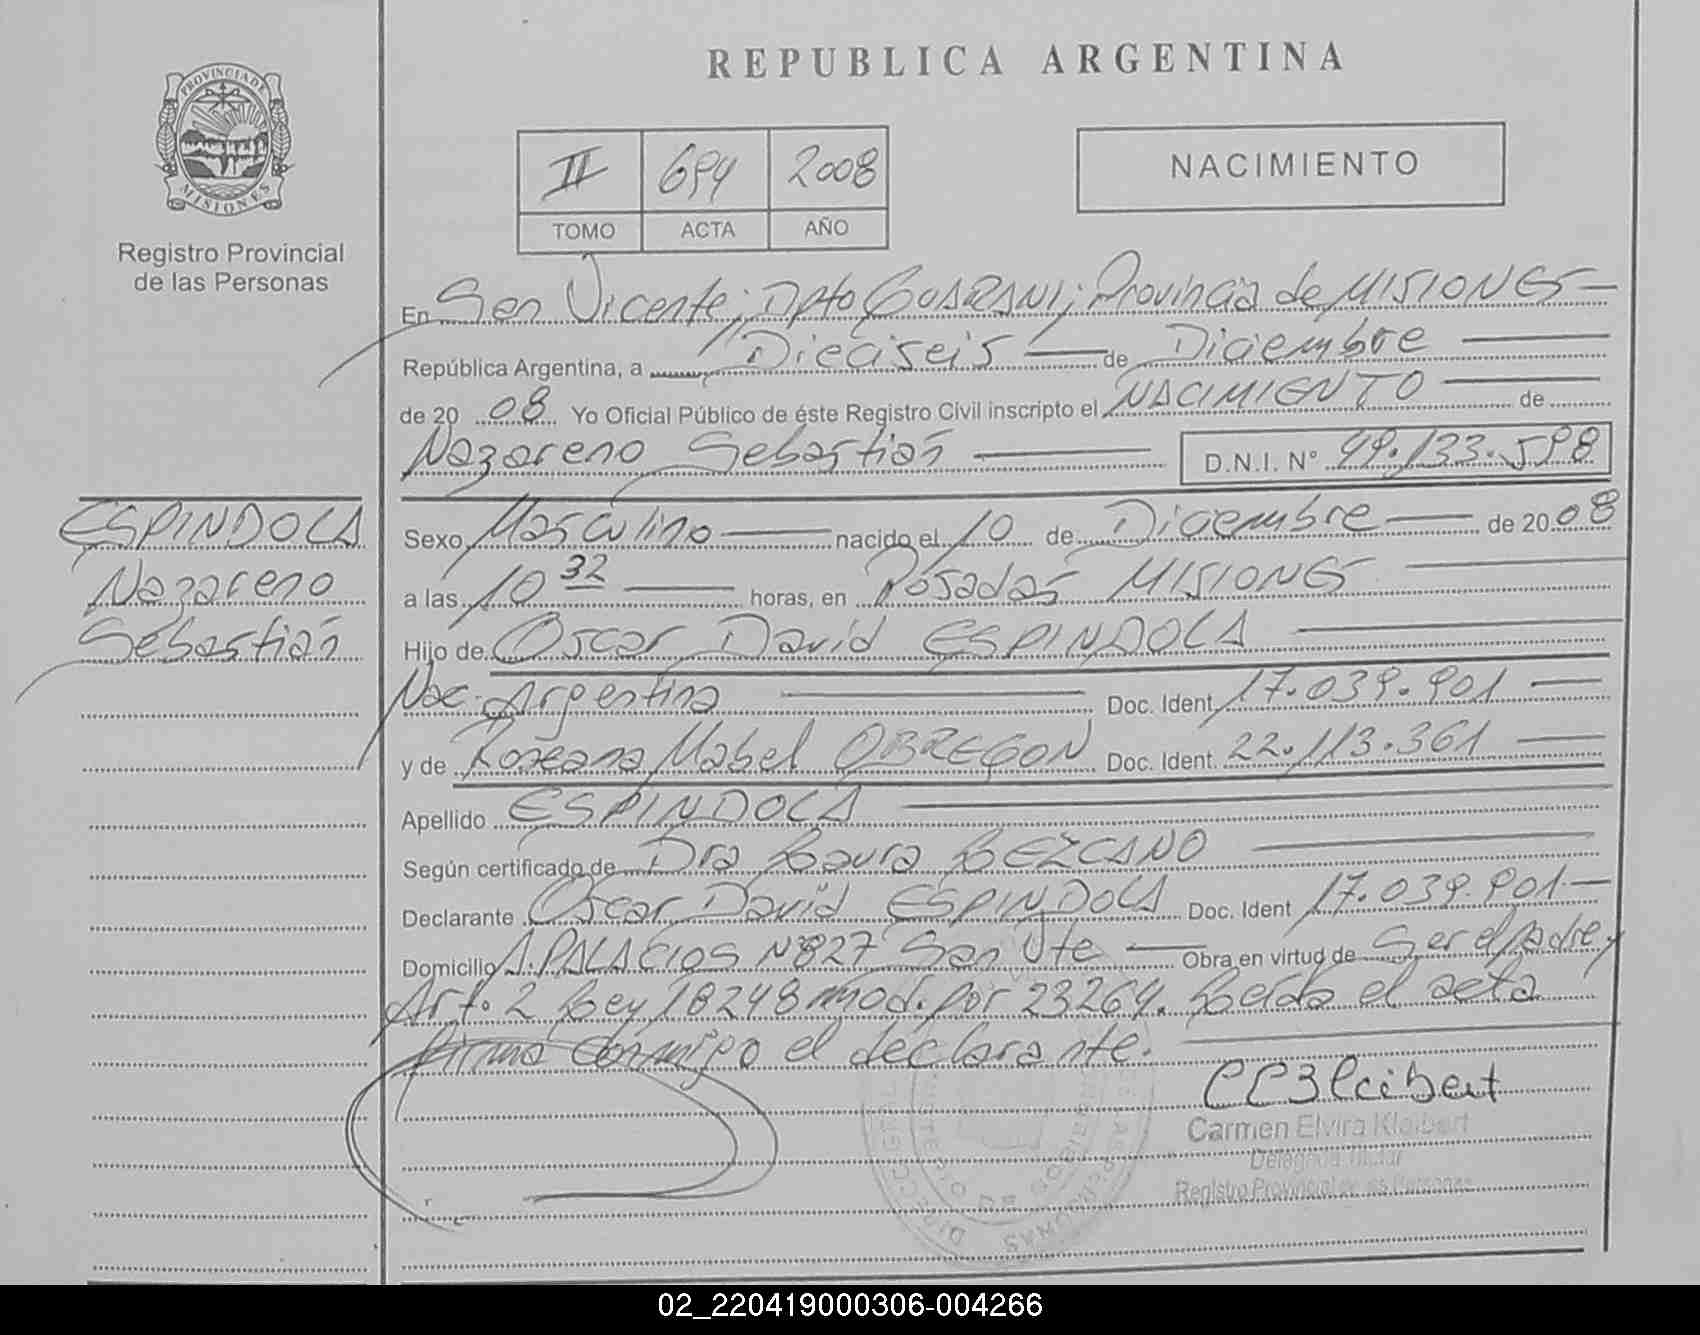 REPUBLICA ARGENTINA
PROVINCIA DE
MISIONES
Registro Provincial
de las Personas
II 694 2008
TOMO ACTA AÑO
NACIMIENTO
En San Vicente; Dpto GUARANI; Provincia de MISIONES
República Argentina, a Dieciseis de Diciembre
de 20 08 Yo Oficial Público de éste Registro Civil inscripto el NACIMIENTO de
Nazareno Sebastián D.N.I. Nº 49.133.598
ESPINDOLA
Nazareno
Sebastián
Sexo Masculino nacido el 10 de Diciembre de 20 08
a las 10 32 horas, en Posadas MISIONES
Hijo de Oscar David ESPINDOLA
Nac. Argentina Doc. Ident. 17.039.901
y de Roxana Mabel OBREGON Doc. Ident. 22.113.361
Apellido ESPINDOLA
Según certificado de Dra Laura LEZCANO
Declarante Oscar David ESPINDOLA Doc. Ident 17.039.901
Domicilio A. PALACIOS Nº827 San Vte Obra en virtud de Ser el padre y
Art. 2 Ley 18248 mod. por 23264. Leída el acta
firma conmigo el declarante.
Carmen Elvira Kleibert
Delegada Titular
Registro Provincial de las Personas
02_220419000306-004266